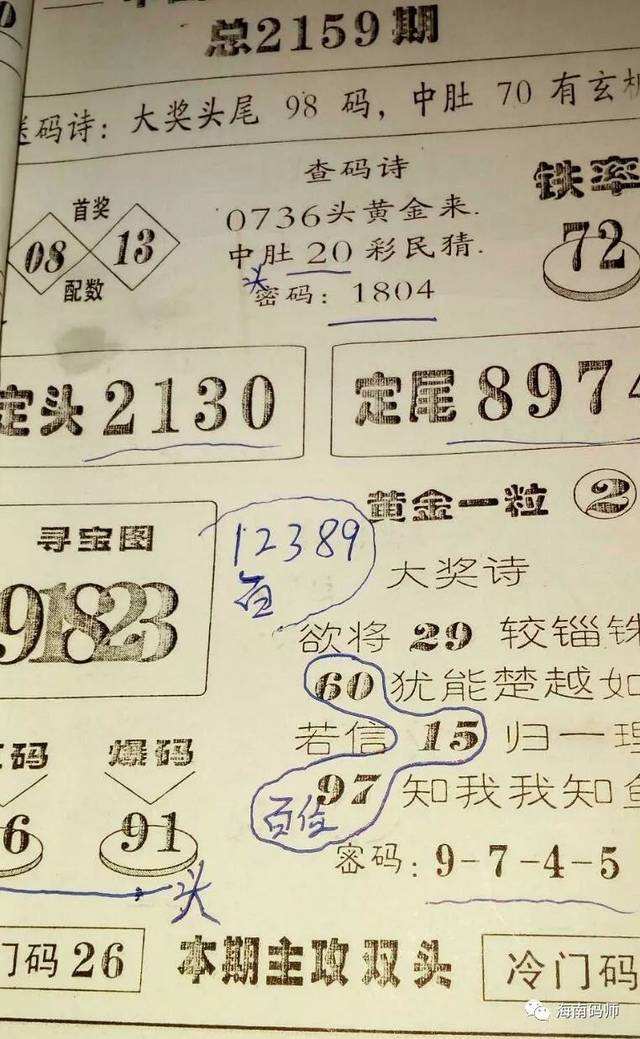 总2159期
送码诗：大奖头尾 98 码，中肚 70 有玄机
查码诗
铁率
首奖
0736头黄金来.
08 13
72
中肚 20 彩民猜.
配数
头
密码：1804
定头 2130
定尾 8974
黄金一粒 2
寻宝图
12389
百
91823
大奖诗
欲将 29 较锱铢
60 犹能楚越如
若信 15 归一理
97 知我我知鱼
百位
码
爆码
6
91
密码：9-7-4-5
头
门码 26
本期主攻双头
冷门码
海南码师